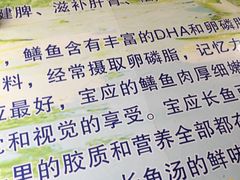 健脾、滋补肝肾、
，鳝鱼含有丰富的DHA和卵磷脂
料，经常摄取卵磷脂，记忆力
应最好，宝应的鳝鱼肉厚细嫩
和视觉的享受。宝应长鱼
里的胶质和营养全部都在
长鱼汤的鲜味